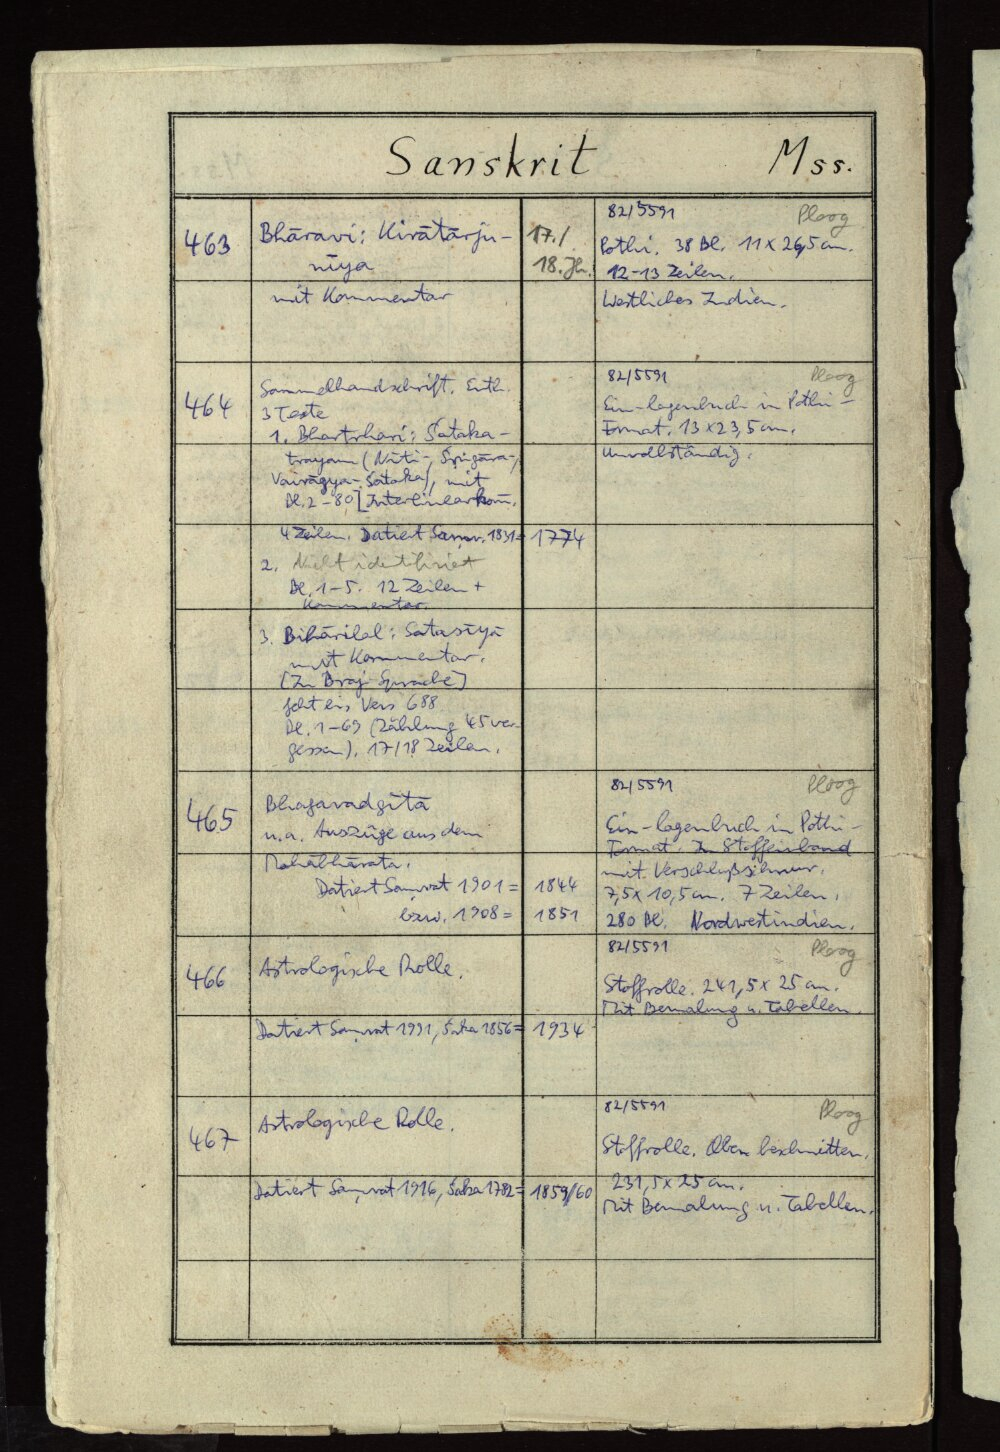 Sanskrit Mss.
463
Bhāravi: Kirātārju-
nīya
mit Kommentar
17./
18. Jh.
82/5591 Ploog
Pothi. 38 Bl. 11 x 26,5 cm.
12-13 Zeilen.
Westliches Indien.
464
Sammelhandschrift. Enth.
3 Texte
1. Bhartṛhari: Śataka-
trayam (Nīti-, Śṛṅgāra-,
Vairāgya-Śataka), mit
Bl. 2-80 [Interlinearkom.
4 Zeilen. Datiert Saṃv. 1831=
1774
2. Nicht identifiziert
Bl. 1-5. 12 Zeilen +
Kommentar.
3. Bihārīlāl: Satasīyā
mit Kommentar.
[In Braj-Sprache]
Geht bis Vers 688
Bl. 1-69 (Zählung 45 ver-
gessen). 17/18 Zeilen.
82/5591 Ploog
Ein-lagenbuch in Pothi-
Format. 13 x 23,5 cm.
Unvollständig.
465
Bhagavadgītā
u. a. Auszüge aus dem
Mahābhārata.
Datiert Saṃvat 1901 =
bzw. 1908 =
1844
1851
82/5591 Ploog
Ein-lagenbuch in Pothi-
Format. In Stoffeinband
mit Verschlußschnur.
7,5 x 10,5 cm. 7 Zeilen.
280 Bl. Nordwestindien.
466
Astrologische Rolle.
Datiert Saṃvat 1991, Śaka 1856=
1934
82/5591 Ploog
Stoffrolle. 241,5 x 25 cm.
Mit Bemalung u. Tabellen.
467
Astrologische Rolle.
Datiert Saṃvat 1916, Śaka 1782=
1859/60
82/5591 Ploog
Stoffrolle. Oben beschnitten.
231,5 x 25 cm.
Mit Bemalung u. Tabellen.